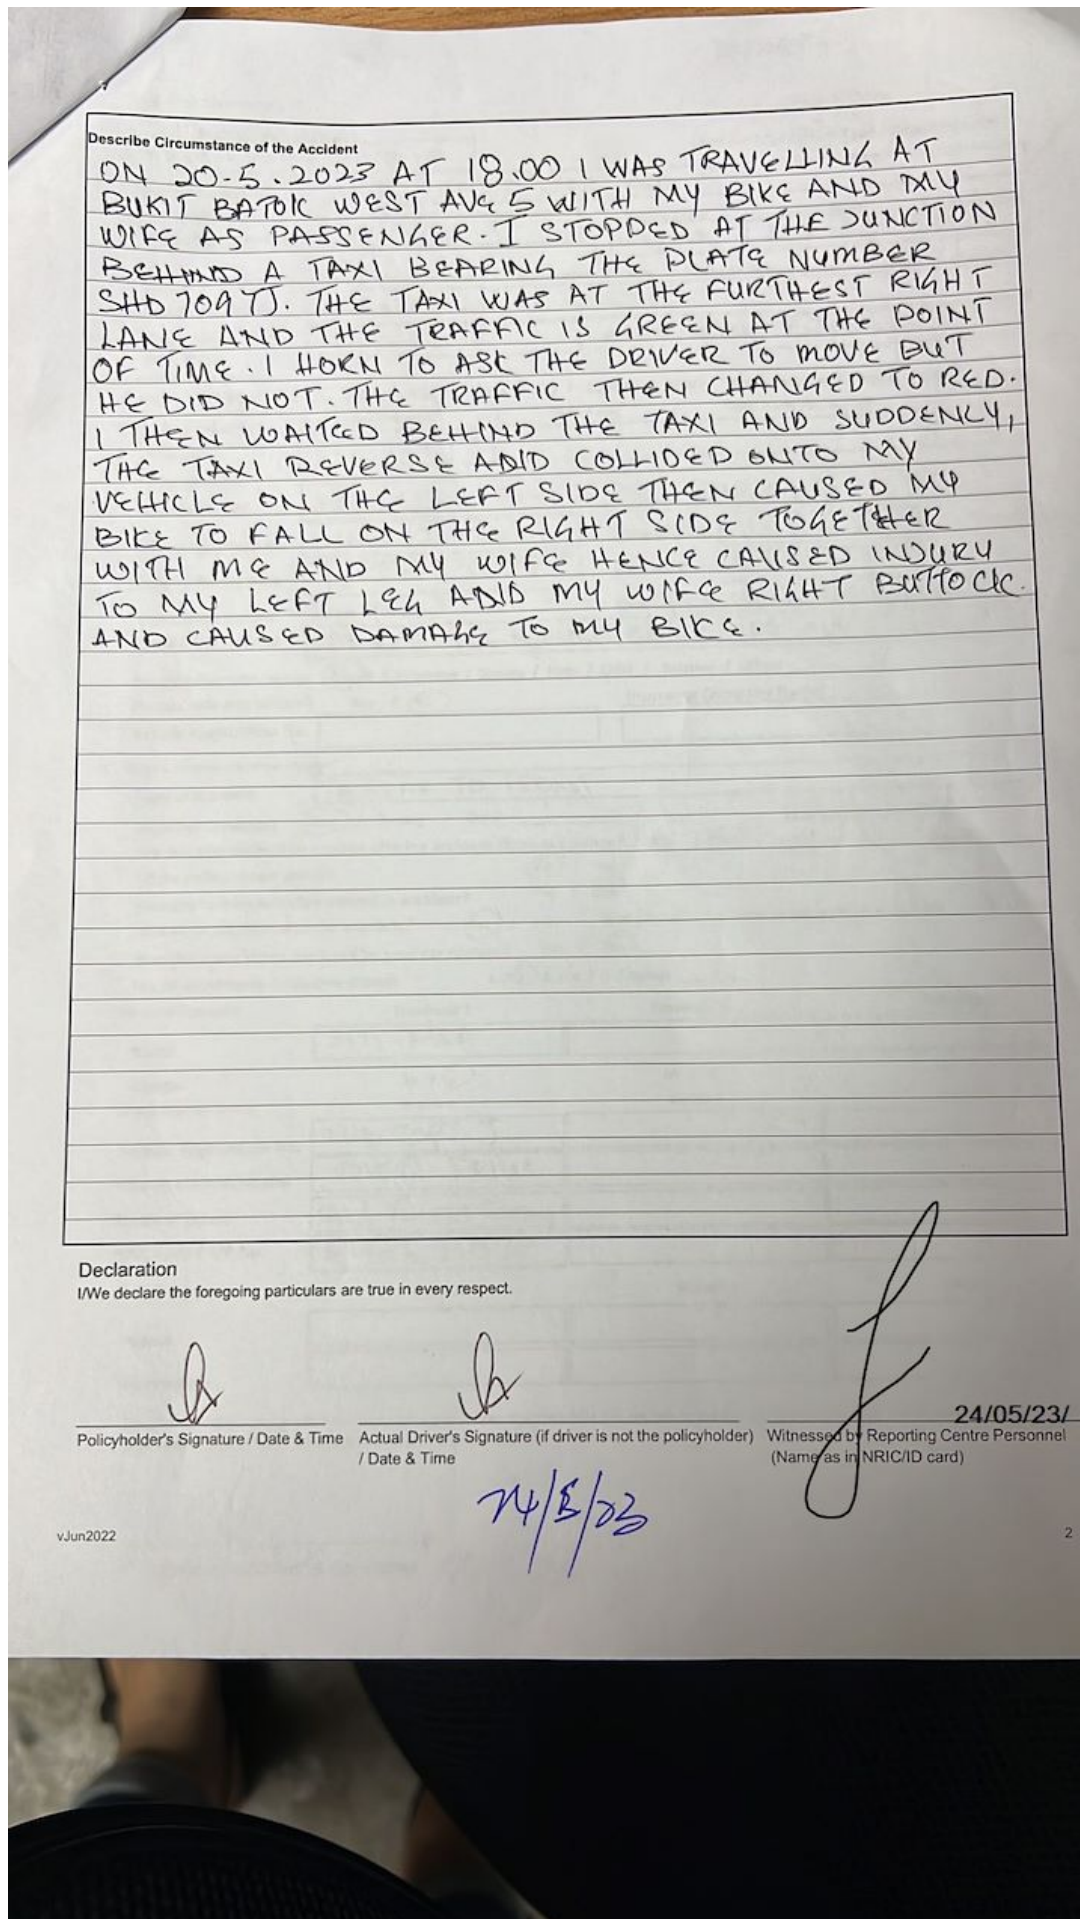 Describe Circumstance of the Accident
ON 20-5.2023 AT 18.00 I WAS TRAVELLING AT
BUKIT BATOK WEST AVE 5 WITH MY BIKE AND MY
WIFE AS PASSENGER. I STOPPED AT THE JUNCTION
BEHIND A TAXI BEARING THE PLATE NUMBER
SHD 7097J. THE TAXI WAS AT THE FURTHEST RIGHT
LANE AND THE TRAFFIC IS GREEN AT THE POINT
OF TIME. I HORN TO ASK THE DRIVER TO MOVE BUT
HE DID NOT. THE TRAFFIC THEN CHANGED TO RED.
I THEN WAITED BEHIND THE TAXI AND SUDDENLY,
THE TAXI REVERSE AND COLLIDED ONTO MY
VEHICLE ON THE LEFT SIDE THEN CAUSED MY
BIKE TO FALL ON THE RIGHT SIDE TOGETHER
WITH ME AND MY WIFE HENCE CAUSED INJURY
TO MY LEFT LEG AND MY WIFE RIGHT BUTTOCK.
AND CAUSED DAMAGE TO MY BIKE.
Declaration
I/We declare the foregoing particulars are true in every respect.
24/05/23/
Policyholder's Signature / Date & Time Actual Driver's Signature (if driver is not the policyholder) Witnessed by Reporting Centre Personnel
/ Date & Time (Name as in NRIC/ID card)
24/5/23
vJun2022 2